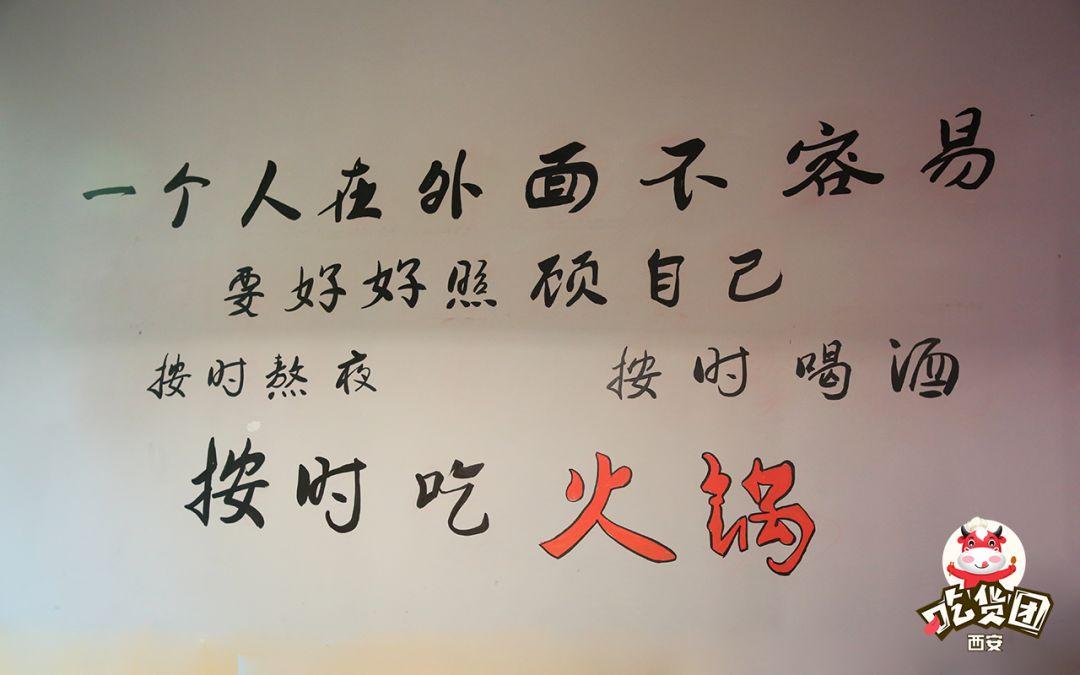 一个人在外面不容易
要好好照顾自己
按时熬夜 按时喝酒
按时吃火锅
吃货团
西安